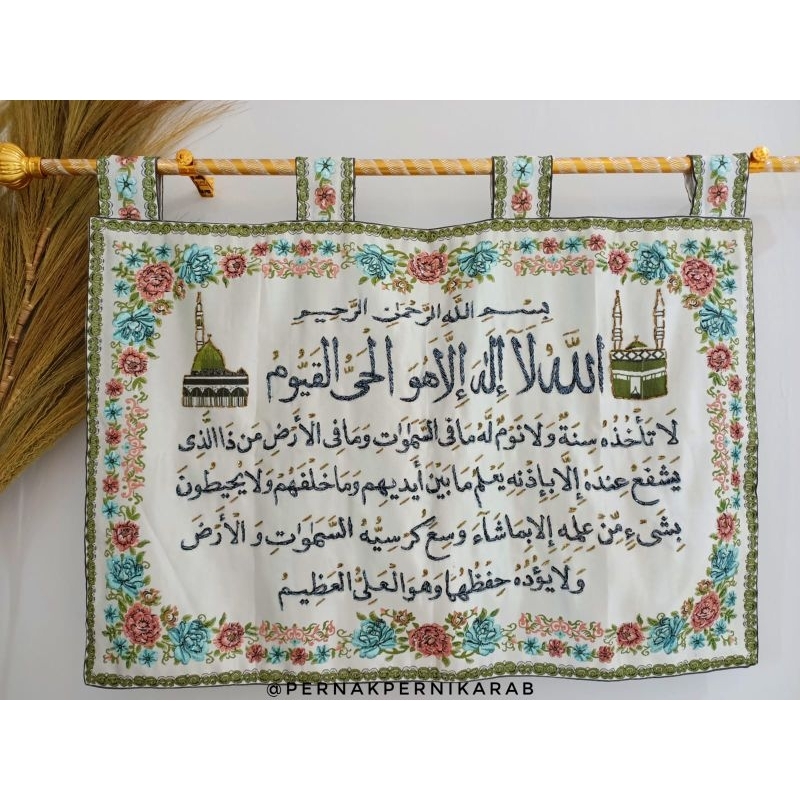 بِسْمِ اللَّهِ الرَّحْمَٰنِ الرَّحِيمِ
اللَّهُ لَا إِلَٰهَ إِلَّا هُوَ الْحَيُّ الْقَيُّومُ
لَا تَأْخُذُهُ سِنَةٌ وَلَا نَوْمٌ لَهُ مَا فِي السَّمَٰوَاتِ وَمَا فِي الْأَرْضِ مَن ذَا الَّذِي
يَشْفَعُ عِندَهُ إِلَّا بِإِذْنِهِ يَعْلَمُ مَا بَيْنَ أَيْدِيهِمْ وَمَا خَلْفَهُمْ وَلَا يُحِيطُونَ
بِشَيْءٍ مِّنْ عِلْمِهِ إِلَّا بِمَا شَاءَ وَسِعَ كُرْسِيُّهُ السَّمَٰوَاتِ وَالْأَرْضَ
وَلَا يَؤُدُهُ حِفْظُهُمَا وَهُوَ الْعَلِيُّ الْعَظِيمُ
@PERNAKPERNIKARAB